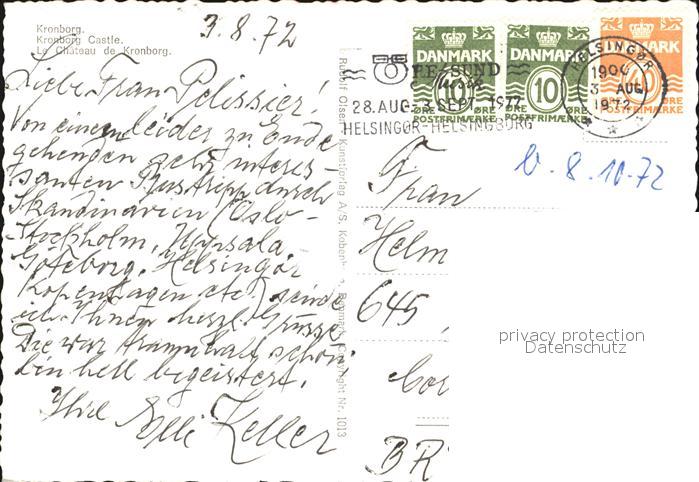 3.8.72
Kronborg.
Kronborg Castle.
Le Château de Kronborg.
Liebe Frau Pelissier!
Von einem leider zu Ende
gehenden sehr interes-
santen Bustripp durch
Skandinavien (Oslo-
Stockholm, Uppsala
Göteborg, Helsingör
Kopenhagen etc) sende
ich Ihnen herzl. Grüsse,
Die war traumhaft schön
bin hell begeistert.
Ihre Elli Keller
Rudolf Olsen Kunstforlag A/S, Københ
Denmark Copyright Nr. 1013
DANMARK
10
ØRE ØRE
POSTFRIMÆRKE
DANMARK
10
ØRE ØRE
POSTFRIMÆRKE
DANMARK
40
ØRE
28.AUG-3.SEPT.1972
HELSINGØR-HELSINGBORG
HELSINGØR
3 AUG
1972
b. 8.10.72
Frau
Helm
645
BR
privacy protection
Datenschutz